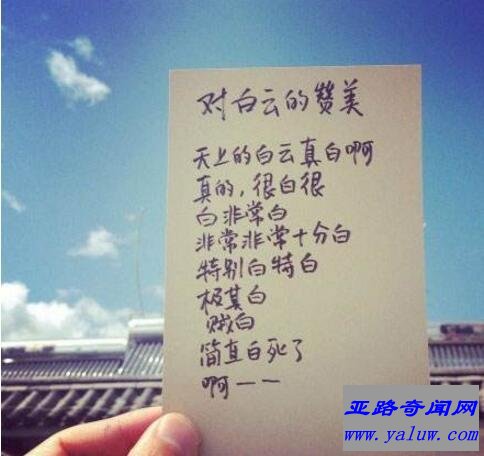 对白云的赞美
天上的白云真白啊
真的，很白很
白非常白
非常非常十分白
特别白特白
极其白
贼白
简直白死了
啊——
亚路奇闻网
www.yaluw.com